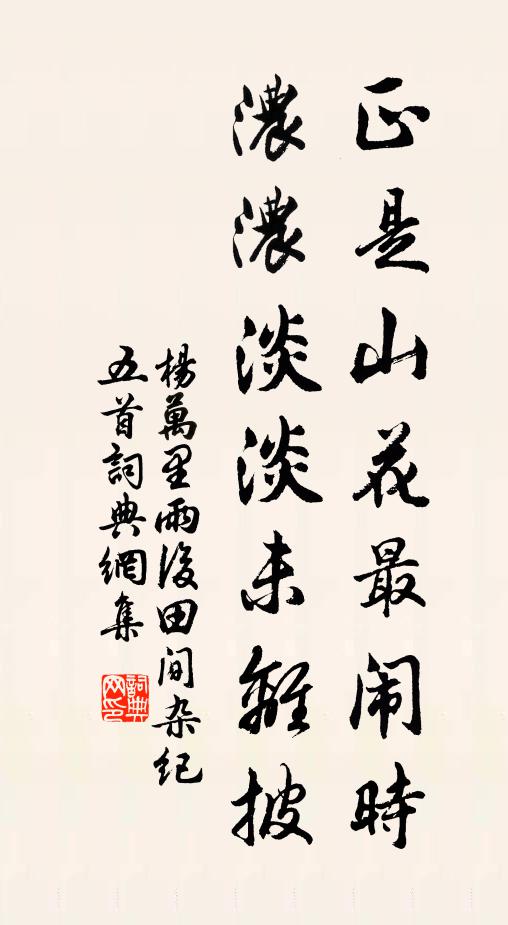 正是山花最闹時
濃濃淡淡未離披
楊萬里雨後田間杂紀
五首詞典網集
詞典网印